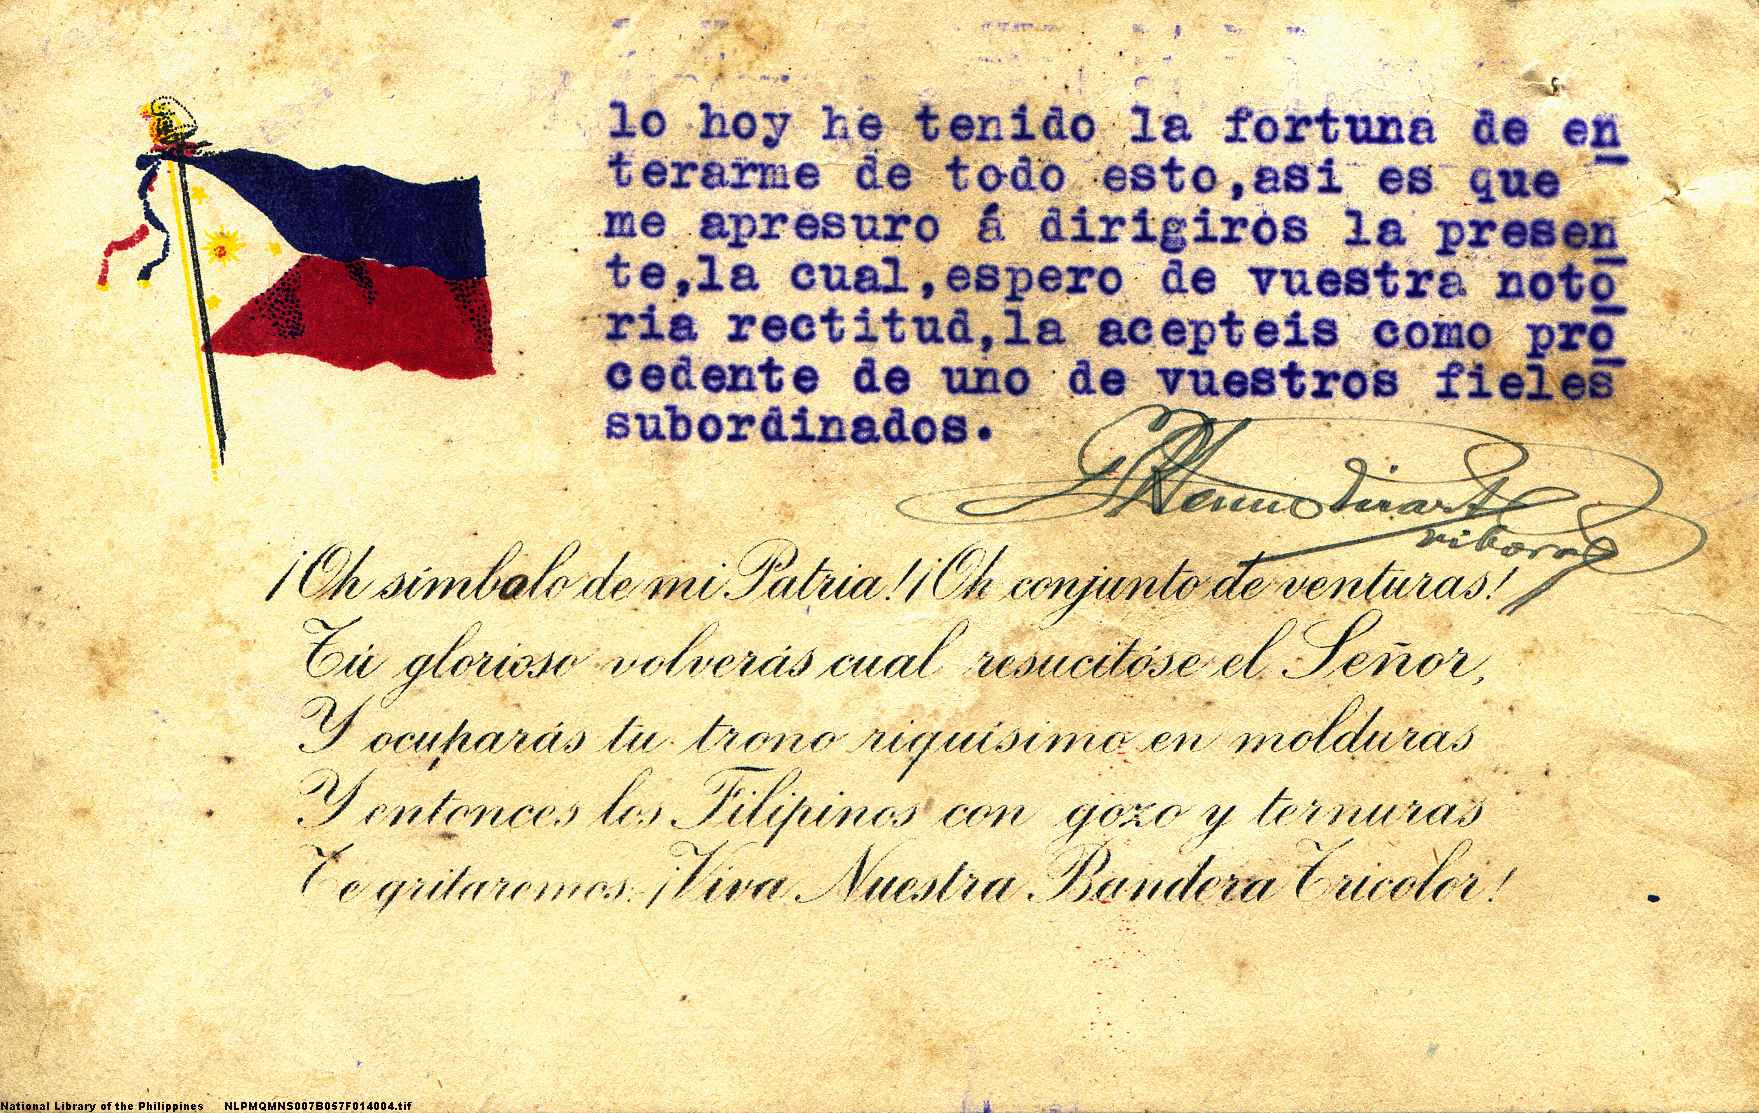 lo hoy he tenido la fortuna de en
terarme de todo esto,asi es que
me apresuro á dirigiros la presen
te,la cual,espero de vuestra noto
ria rectitud,la acepteis como pro
cedente de uno de vuestros fieles
subordinados.
¡Oh símbolo de mi Patria! ¡Oh conjunto de venturas!
Tú glorioso volverás cual resucitóse el Señor,
Y ocuparás tu trono riquísimo en molduras
Y entonces los Filipinos con gozo y ternuras
Te gritaremos: ¡Viva Nuestra Bandera Tricolor!
National Library of the Philippines NLPMQMNS007B057F014004.tif